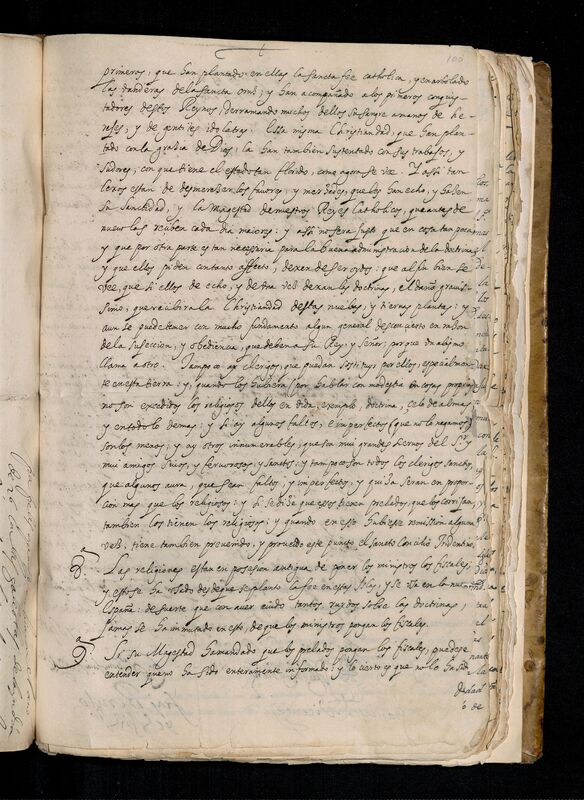 100
primeros, que han plantado en ellas la sancta fee catholica, y enarbolado
las banderas de la sancta cruz, y han acompañado a los primeros conquis-
tadores destos Reynos, derramando muchos dellos su sangre a manos de he-
rejes, y de gentiles idolatras. Essa misma Christiandad, que han plan-
tado con la gracia de Dios, la han tambien sustentado con sus trabajos, y
sudores, con que tiene el estado tan florido, como agora se vee. Y assi tan
lexos estan de desmerecer los favores, y mercedes, que los han echo, y hazen
su Sanctidad, y la Magestad de nuestros Reyes Catholicos, que antes de
nuevo las reciben cada dia maiores: y assi no sera justo que en cosa tan poca
y que por otra parte es tan necessaria para la buena administracion de la doctrina
y que ellos piden con tanto affecto, dexen de ser oydos: que al fin bien se
vee, que si ellos de echo, y de una vez dexan las doctrinas, el daño gravis-
simo, que recibira la Christiandad destas nuebas, y tiernas plantas: y
aun se puede temer con mucho fundamento algun general desconcierto en razon
de la sujeccion, y obediencia, que deben a su Rey, y Señor, porque un abismo
llama a otro. Tampoco ay clerigos, que puedan sostituyr por ellos, especialmen-
te en esta tierra: y, quando los hubiera (por hablar con modestia en cosas propias)
no son excedidos los religiosos dellos en vida, exemplo, doctrina, celo de almas,
y en todo lo demas: y si ay algunos faltos, e imperfectos (que no lo negamos)
son los menos, y ay otros innumerables, que son mui grandes siervos del Sr
mui amigos suios, y fervorosos, y sanctos: y tampoco son todos los clerigos sanctos,
que algunos aura, que sean faltos, y imperfectos, y quiza seran en propor-
cion mas que los religiosos: y si se dize que essos tienen prelados, que los corrijan,
tambien los tienen los religiosos: y quando en esto hubiesse remission alguna
vez, tiene tambien prevenido, y proveido este punto el sancto Concilio Tridentino.
8. Las religiones estan en posesion antigua de poner los ministros los fiscales,
y esto se ha usado desde que se planto la fee en essas Islas, y se usa en la nueva
España: de suerte que con aver avido tantos ruydos sobre las doctrinas,
jamas se ha inmutado en esto, de que los ministros pongan los fiscales.
9. Si su Magestad ha mandado que los prelados pongan los fiscales, puedese
entender que no ha sido enteramente informado: y lo cierto es que no lo ha sido